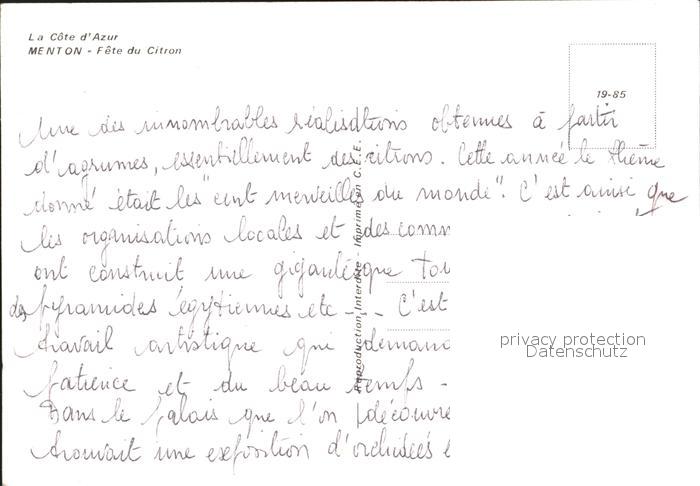 La Côte d'Azur
MENTON - Fête du Citron
19-85
Une des innombrables réalisations obtenues à partir
d'agrumes, essentiellement des citrons. Cette année le thème
donné était les "cent merveilles du monde". C'est ainsi que
les organisations locales et des comm
ont construit une gigantesque Tou
des pyramides égyptiennes etc --- C'est
travail artistique qui demand
patience et du beau temps -
Dans le palais que l'on découvre
trouvait une exposition d'orchidées e
Reproduction Interdite - Imprimé en C.E.E.
privacy protection
Datenschutz